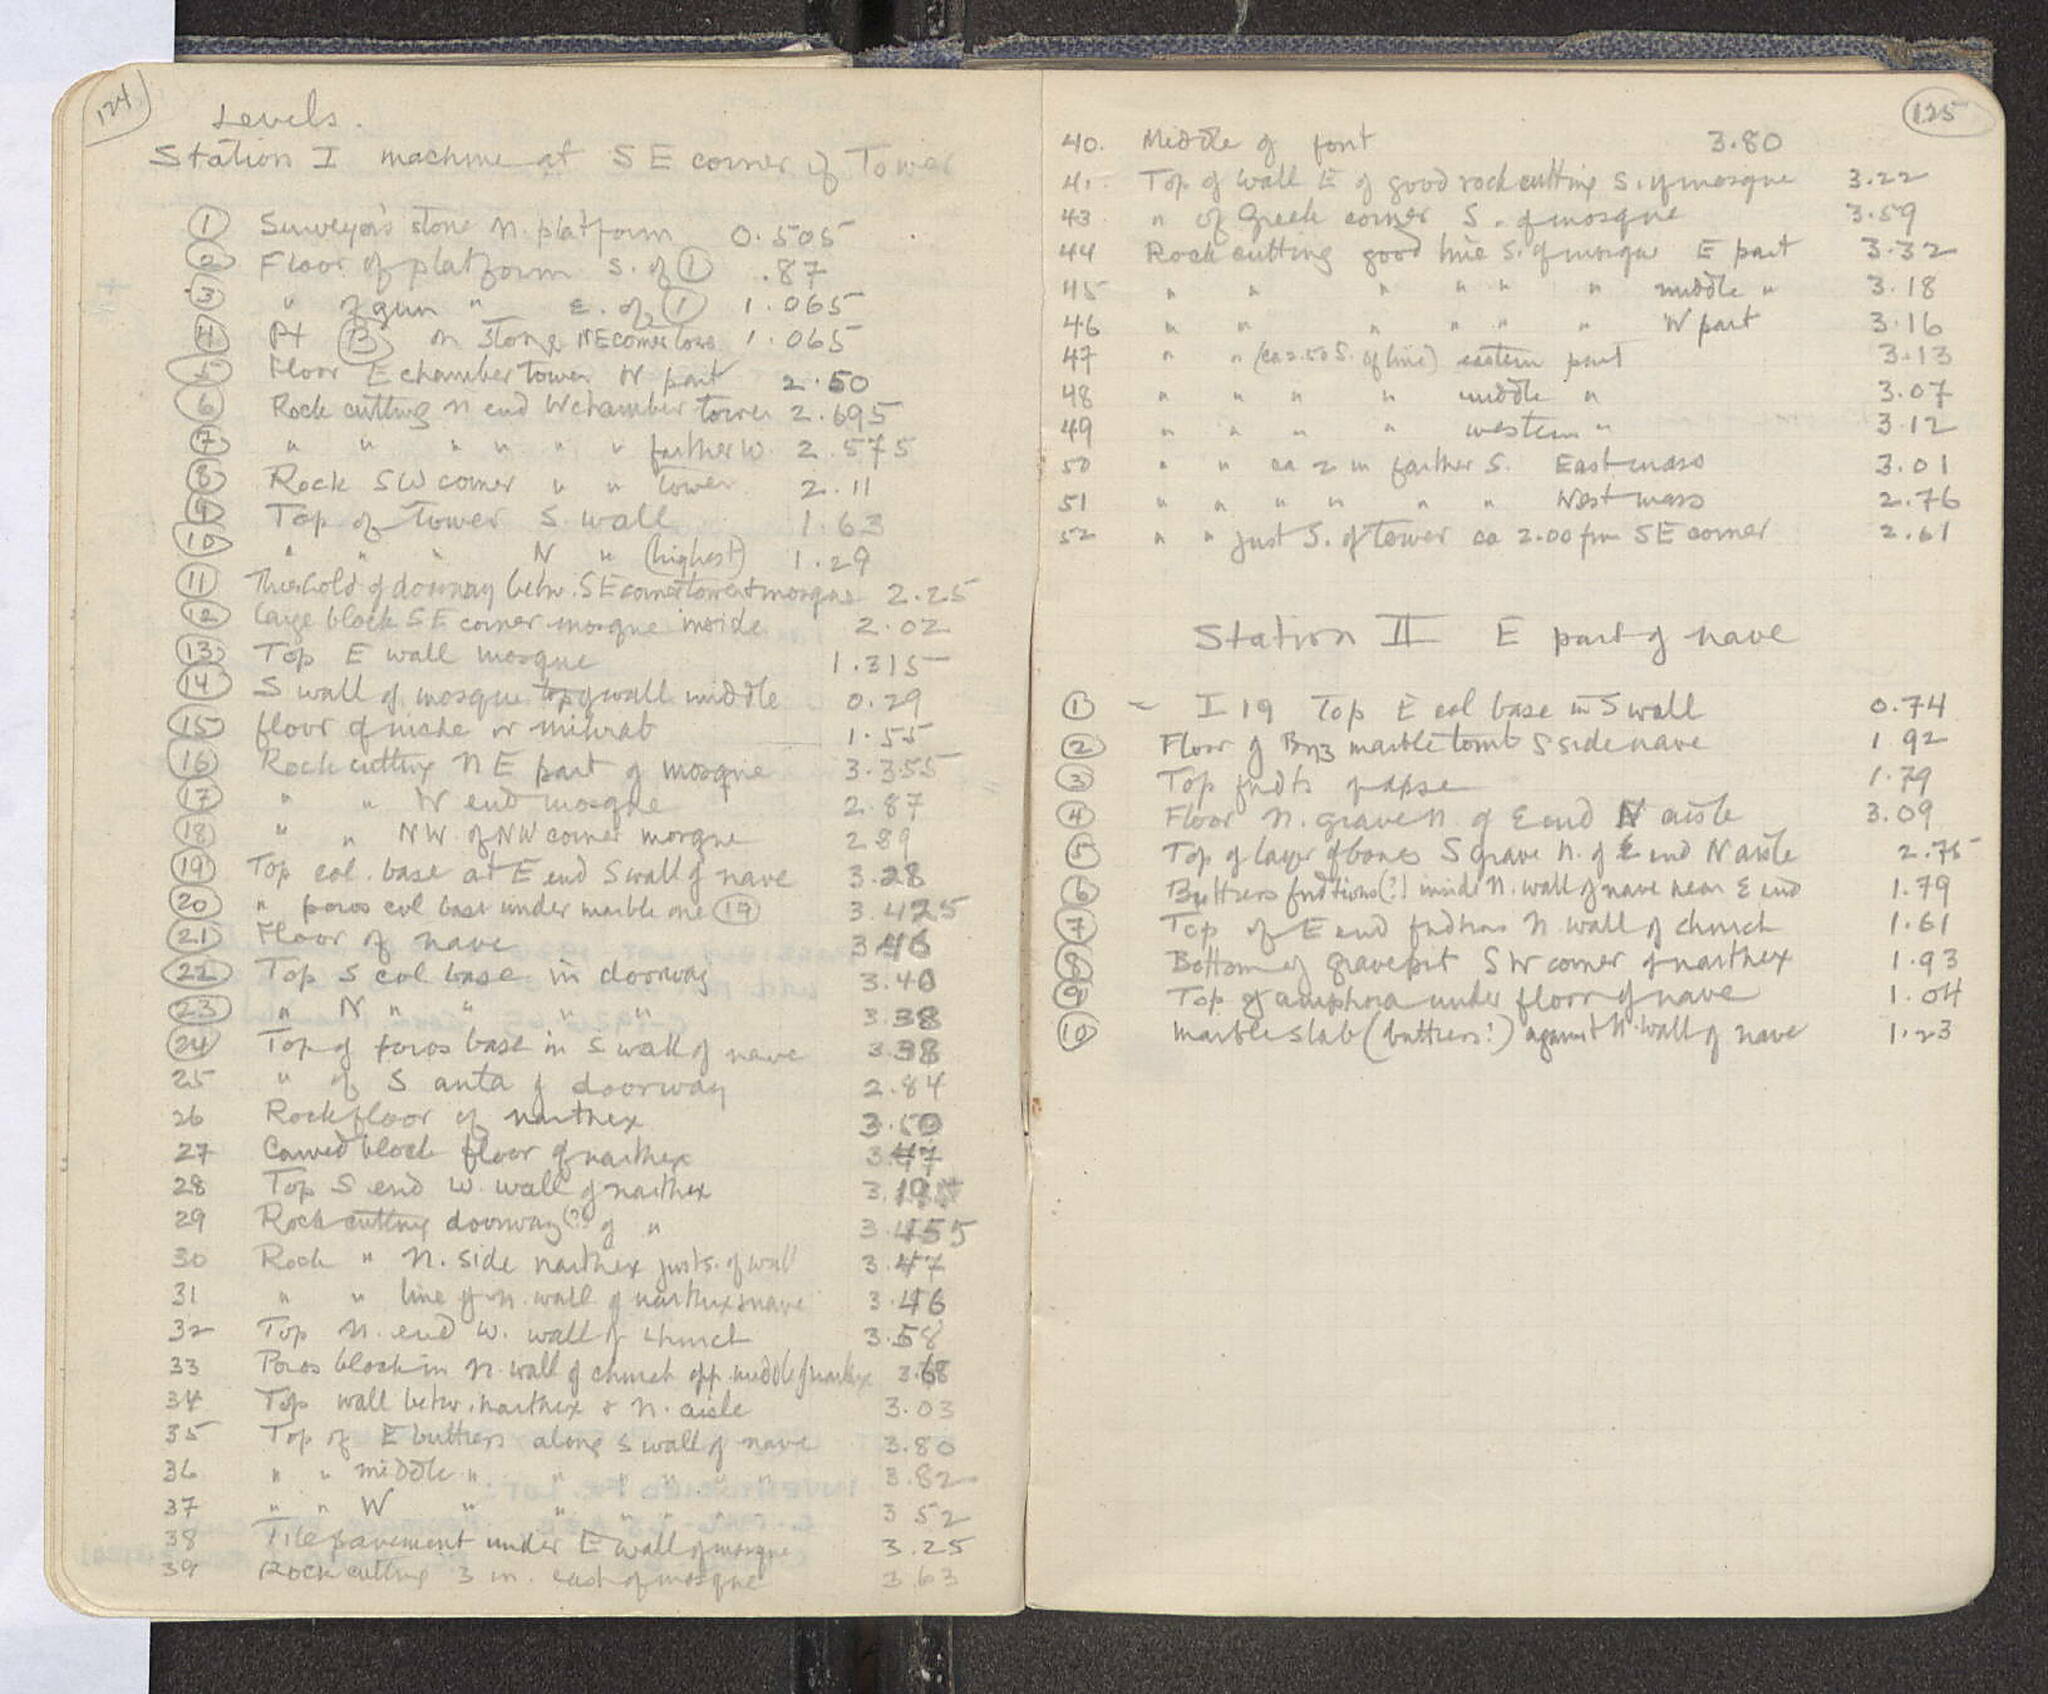 124
Levels.
Station I machine at SE corner of Tower
1 Surveyor's stone N. platform 0.505
2 Floor of platform S. of 1 .87
3 " of gun " E. of 1 1.065
4 Pt B on stone NE corner 1.065
5 Floor E chamber tower W part 2.50
6 Rock cutting N end W chamber tower 2.695
7 " " " " " " farther W. 2.575
8 Rock SW corner " " tower 2.11
9 Top of Tower S. wall 1.63
10 " " " N " (highest) 1.29
11 Threshold of doorway betw. SE corner tower + mosque 2.25
12 Large block SE corner mosque inside 2.02
13 Top E wall mosque 1.315
14 S wall of mosque top of wall middle 0.29
15 floor of niche or mihrab 1.55
16 Rock cutting NE part of mosque 3.355
17 " " W end mosque 2.87
18 " " NW. of NW corner mosque 2.89
19 Top col. base at E end S wall of nave 3.28
20 " poros col base under marble one 19 3.425
21 Floor of nave 3.46
22 Top S col base in doorway 3.40
23 " N " " " " 3.38
24 Top of poros base in S wall of nave 3.38
25 " of S anta of doorway 2.84
26 Rock floor of narthex 3.50
27 Carved block floor of narthex 3.47
28 Top S end W. wall of narthex
29 Rock cutting doorway (?) of " 3.455
30 Rock " N. side narthex just S. of wall 3.47
31 " " line of N. wall of narthex + nave 3.46
32 Top N. end W. wall of church 3.58
33 Poros block in N. wall of church opp. middle of narthex 3.68
34 Top wall betw. narthex & N. aisle 3.03
35 Top of E buttress along S wall of nave 3.80
36 " " middle " " " " " " 3.82
37 " " W " " " " " " 3.52
38 Tile pavement under E wall of mosque 3.25
39 Rock cutting 3 m. east of mosque 3.63
125
40. Middle of font 3.80
41. Top of wall E of good rock cutting S. of mosque 3.22
43 " of Greek corner S. of mosque 3.59
44 Rock cutting good line S. of mosque E part 3.32
45 " " " " " " middle " 3.18
46 " " " " " " W part 3.16
47 " " (ca 2.50 S. of line) eastern part 3.13
48 " " " " middle " 3.07
49 " " " " western " 3.12
50 " " ca 2 m farther S. East mass 3.01
51 " " " " " " West mass 2.76
52 " " just S. of tower ca 2.00 fm SE corner 2.61
Station II E part of nave
1 = I 19 Top E col base in S wall 0.74
2 Floor of marble tomb S side nave 1.92
3 Top fndts of apse 1.79
4 Floor N. grave N. of E end N aisle 3.09
5 Top of layer of bones S grave N. of E end N aisle 2.75
6 Buttress fndtions (?) inside N. wall of nave near E end 1.79
7 Top of E end fndtions N wall of church 1.61
8 Bottom of grave pit SW corner of narthex 1.93
9 Top of amphora under floor of nave 1.04
10 Marble slab (buttress?) against N. wall of nave 1.23